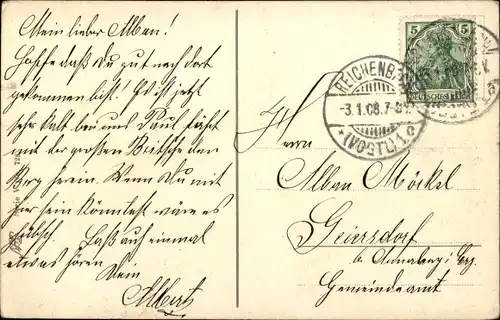 Mein lieber Alban!
Hoffe daß du gut nach dort
gekommen bist! Es ist jetzt
sehr kalt bei uns Paul fährt
mit der großen Britsche den
Berg herein. Wenn Du mit
hier sein könntest wäre es
hübsch. Laß auch einmal
etwas hören. Dein
Albert
5 5
DEUTSCHES REICH
REICHENBACH
-3.1.08.7-8V.
*(VOGTL.)1c
Herrn
Alban Möckel
Geiersdorf
b. Annaberg i. Erzg.
Gemeindeamt